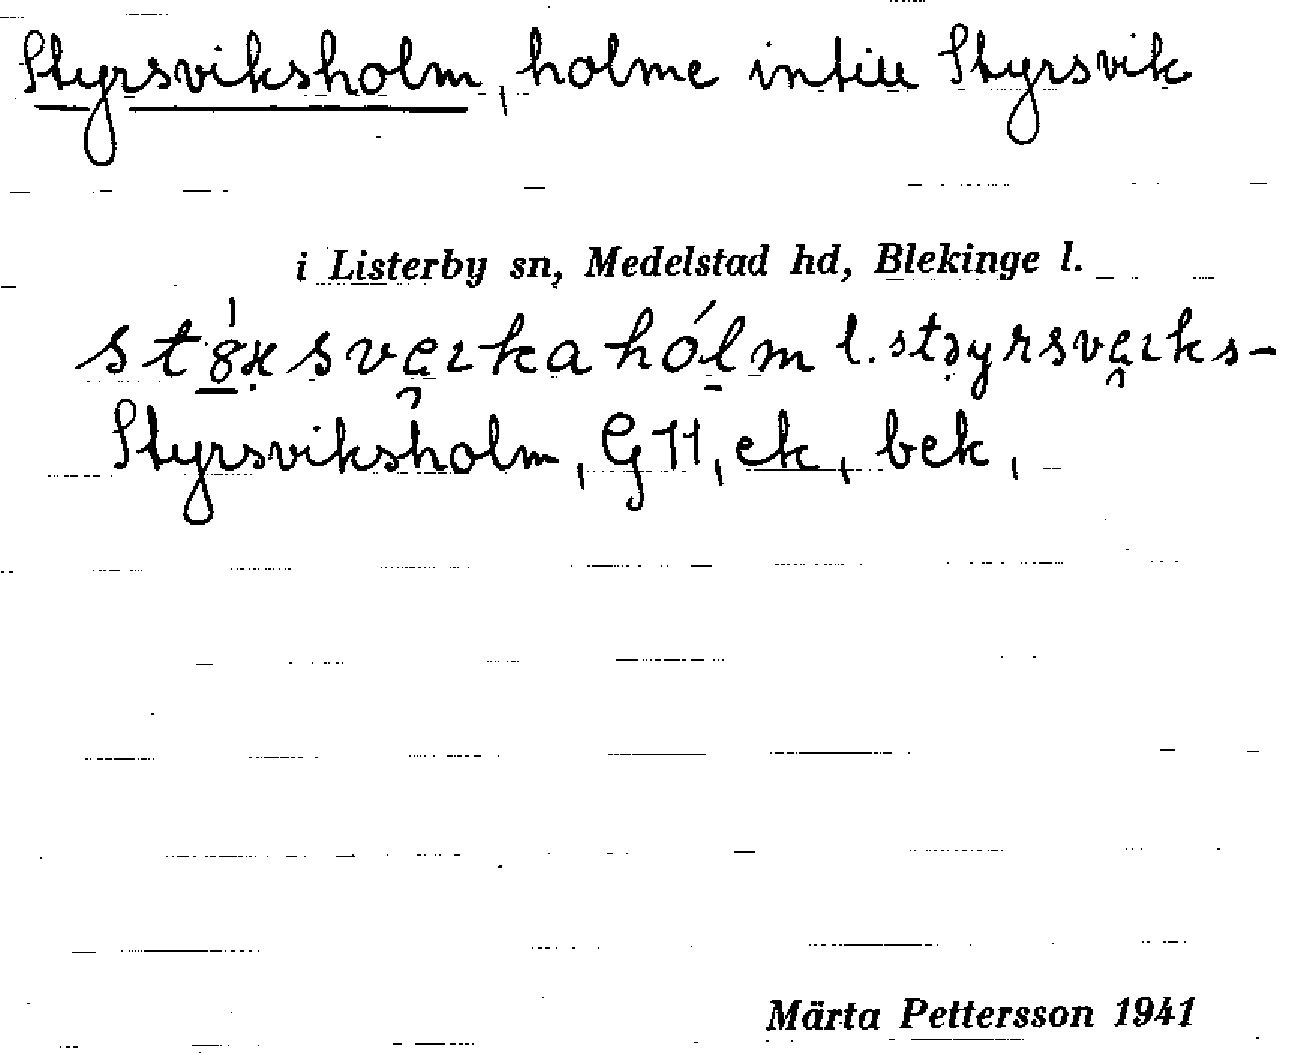 Styrsviksholm, holme intill Styrsvik
i Listerby sn, Medelstad hd, Blekinge l.
l.
Styrsviksholm, G 11, ek, bek,
Märta Pettersson 1941